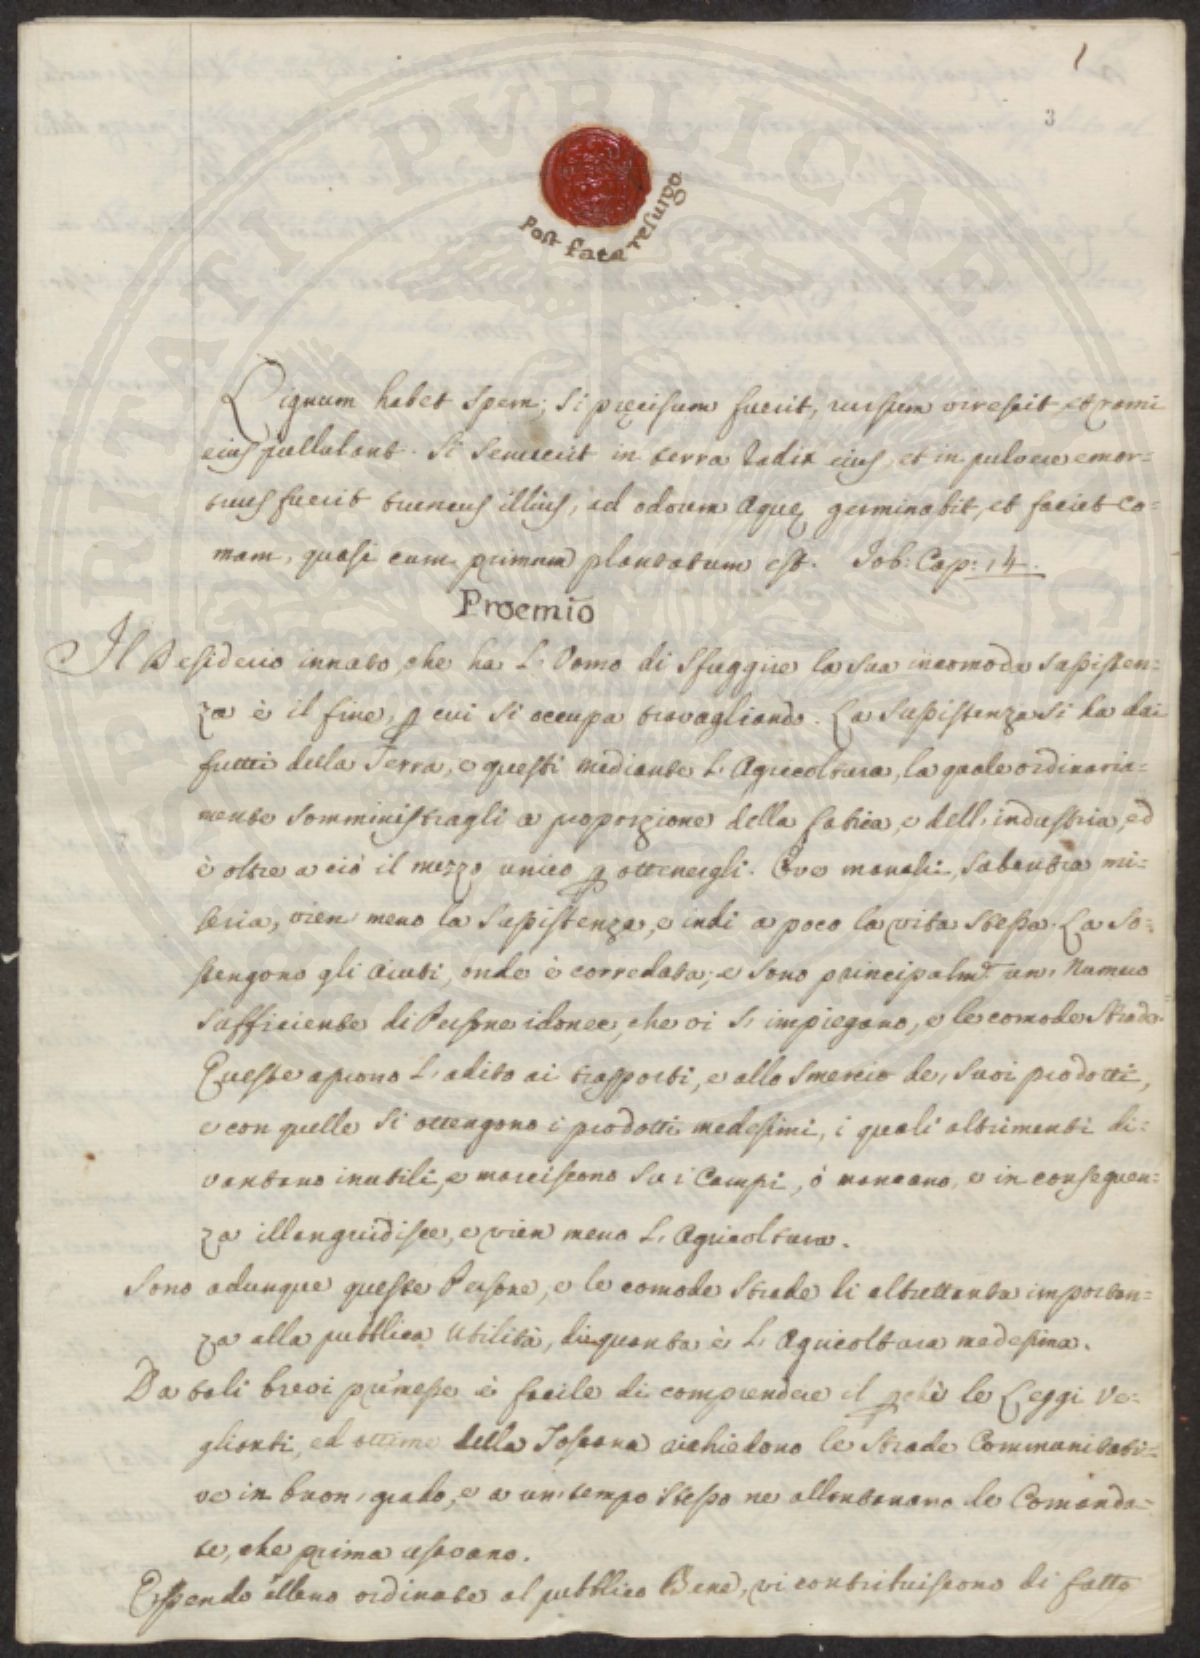 1
3
Post fata resurgo
Lignum habet spem; si pręcisum fuerit, rursum virescit, et rami
eius pullulant. Si senuerit in terra radix eius, et in pulvere emor=
tuus fuerit truncus illius, ad odorem aquę germinabit, et faciet co=
mam, quasi cum primum plantatum est. Job: Cap: 14.
Proemio
Il desiderio innato, che ha L'Uomo di sfuggire la sua incomoda sussisten=
za è il fine, p cui si occupa travagliando. La sussistenza si ha dai
frutti della Terra, e questi mediante L'Agricoltura, la quale ordinaria=
mente somministragli a proporzione della fatica, e dell'industria, ed
è oltre a ciò il mezzo unico p ottenergli. Ove manchi, subentra mi=
seria, vien meno la sussistenza, e indi a poco la vita stessa. La so=
stengono gli aiuti, onde è corredata; e sono principalm.te un'Numero
sufficiente di Persone idonee, che vi s'impiegano, e le comode strade.
Queste aprono L'adito ai trasporti, e allo smercio de'suoi prodotti,
e con quelle si ottengono i prodotti medesimi, i quali altrimenti di=
ventano inutili, e marciscono su i Campi, ò mancano, e in conseguen=
za illanguidisce, e vien meno L'Agricoltura.
Sono adunque queste Persone, e le comode strade di altrettanta importan=
za alla pubblica Utilità, di quanta è L'Agricoltura medesima.
Da tali brevi premesse è facile di comprendere il pchè le Leggi Ve=
glianti, ed ottime della Toscana richiedono le strade Communitati=
ve in buon'grado, e a un'tempo stesso ne allontanano le Comanda=
te, che prima usavano.
Essendo elleno ordinate al pubblico Bene, vi contribuiscono di fatto